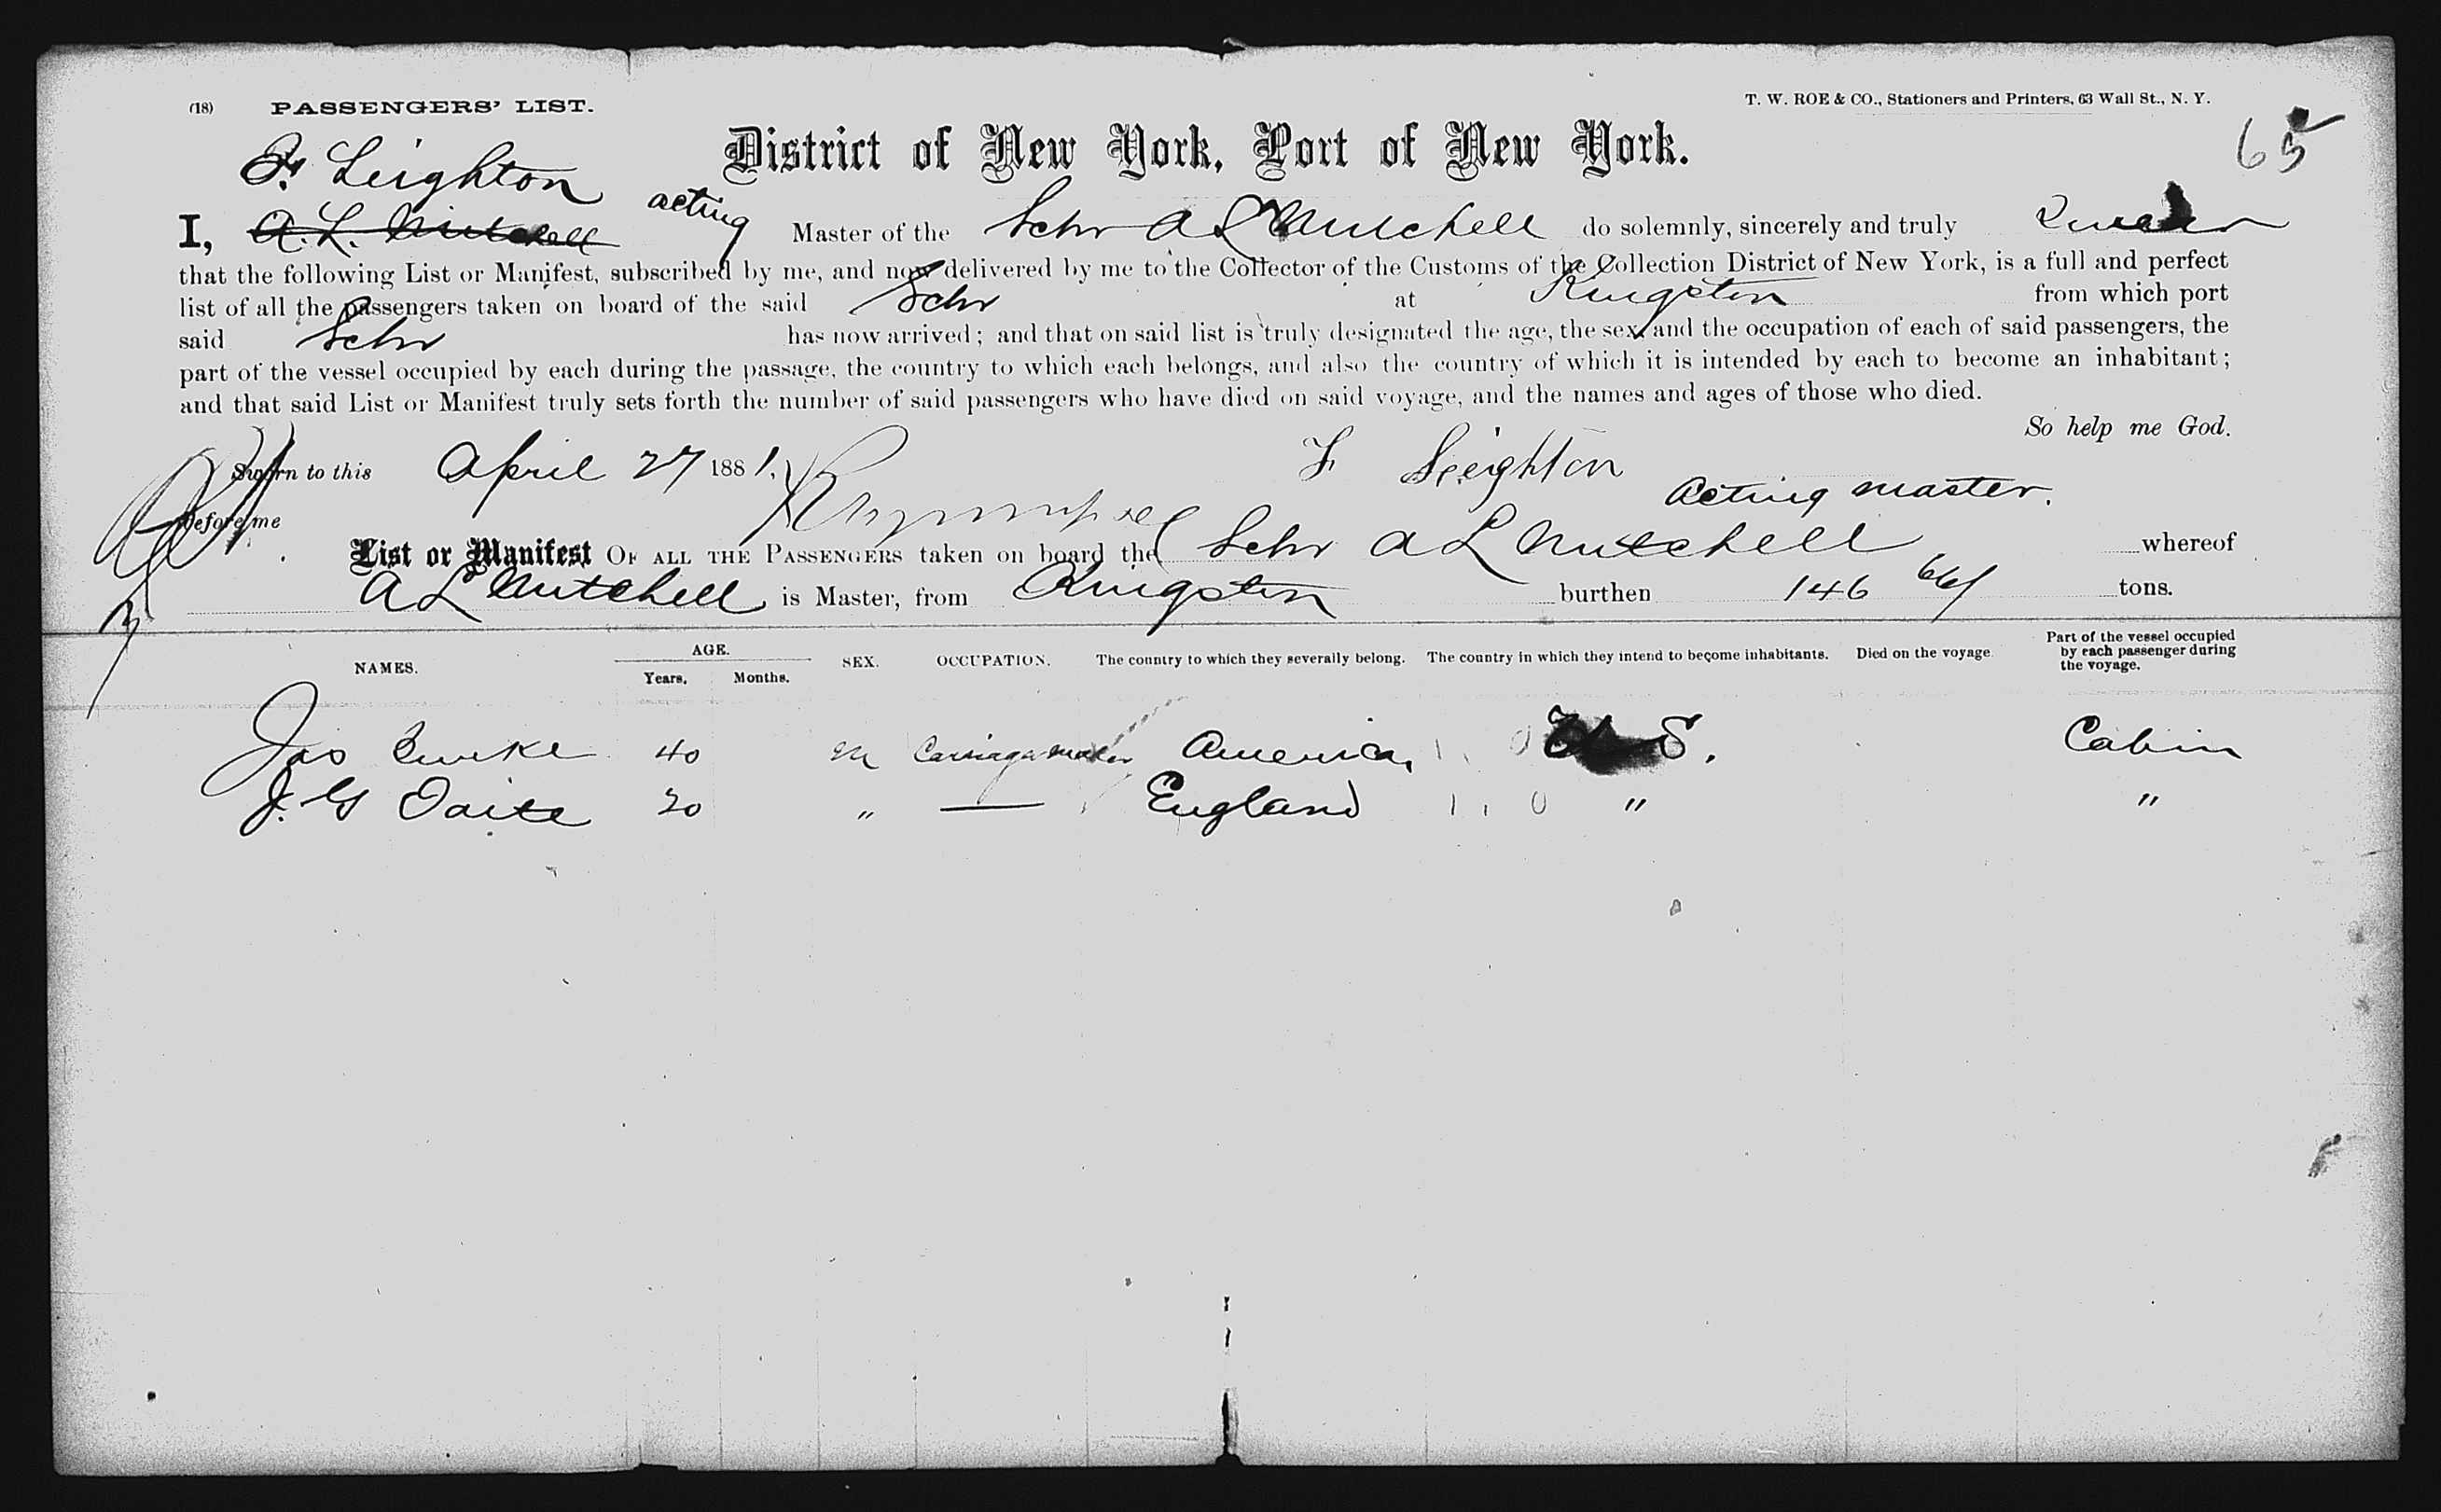 (18) PASSENGERS' LIST. T. W. ROE & CO., Stationers and Printers, 63 Wall St., N. Y.
65
District of New York, Port of New York.
F. Leighton acting
I, A. L. Mitchell Master of the Schr A L Mitchell do solemnly, sincerely and truly Swear
that the following List or Manifest, subscribed by me, and now delivered by me to the Collector of the Customs of the Collection District of New York, is a full and perfect
list of all the passengers taken on board of the said Schr at Kingston from which port
said Schr has now arrived; and that on said list is truly designated the age, the sex and the occupation of each of said passengers, the
part of the vessel occupied by each during the passage, the country to which each belongs, and also the country of which it is intended by each to become an inhabitant;
and that said List or Manifest truly sets forth the number of said passengers who have died on said voyage, and the names and ages of those who died.
So help me God.
Sworn to this April 27 1881. F Leighton
Acting master.
Before me
List or Manifest OF ALL THE PASSENGERS taken on board the Schr A L Mitchell whereof
A L Mitchell is Master, from Kingston burthen 146 66/ tons.
NAMES. AGE. Years. Months. SEX. OCCUPATION. The country to which they severally belong. The country in which they intend to become inhabitants. Died on the voyage. Part of the vessel occupied by each passenger during the voyage.
Jas Burke 40 M Carriage maker America, U S. Cabin
J. G 20 " — England " "